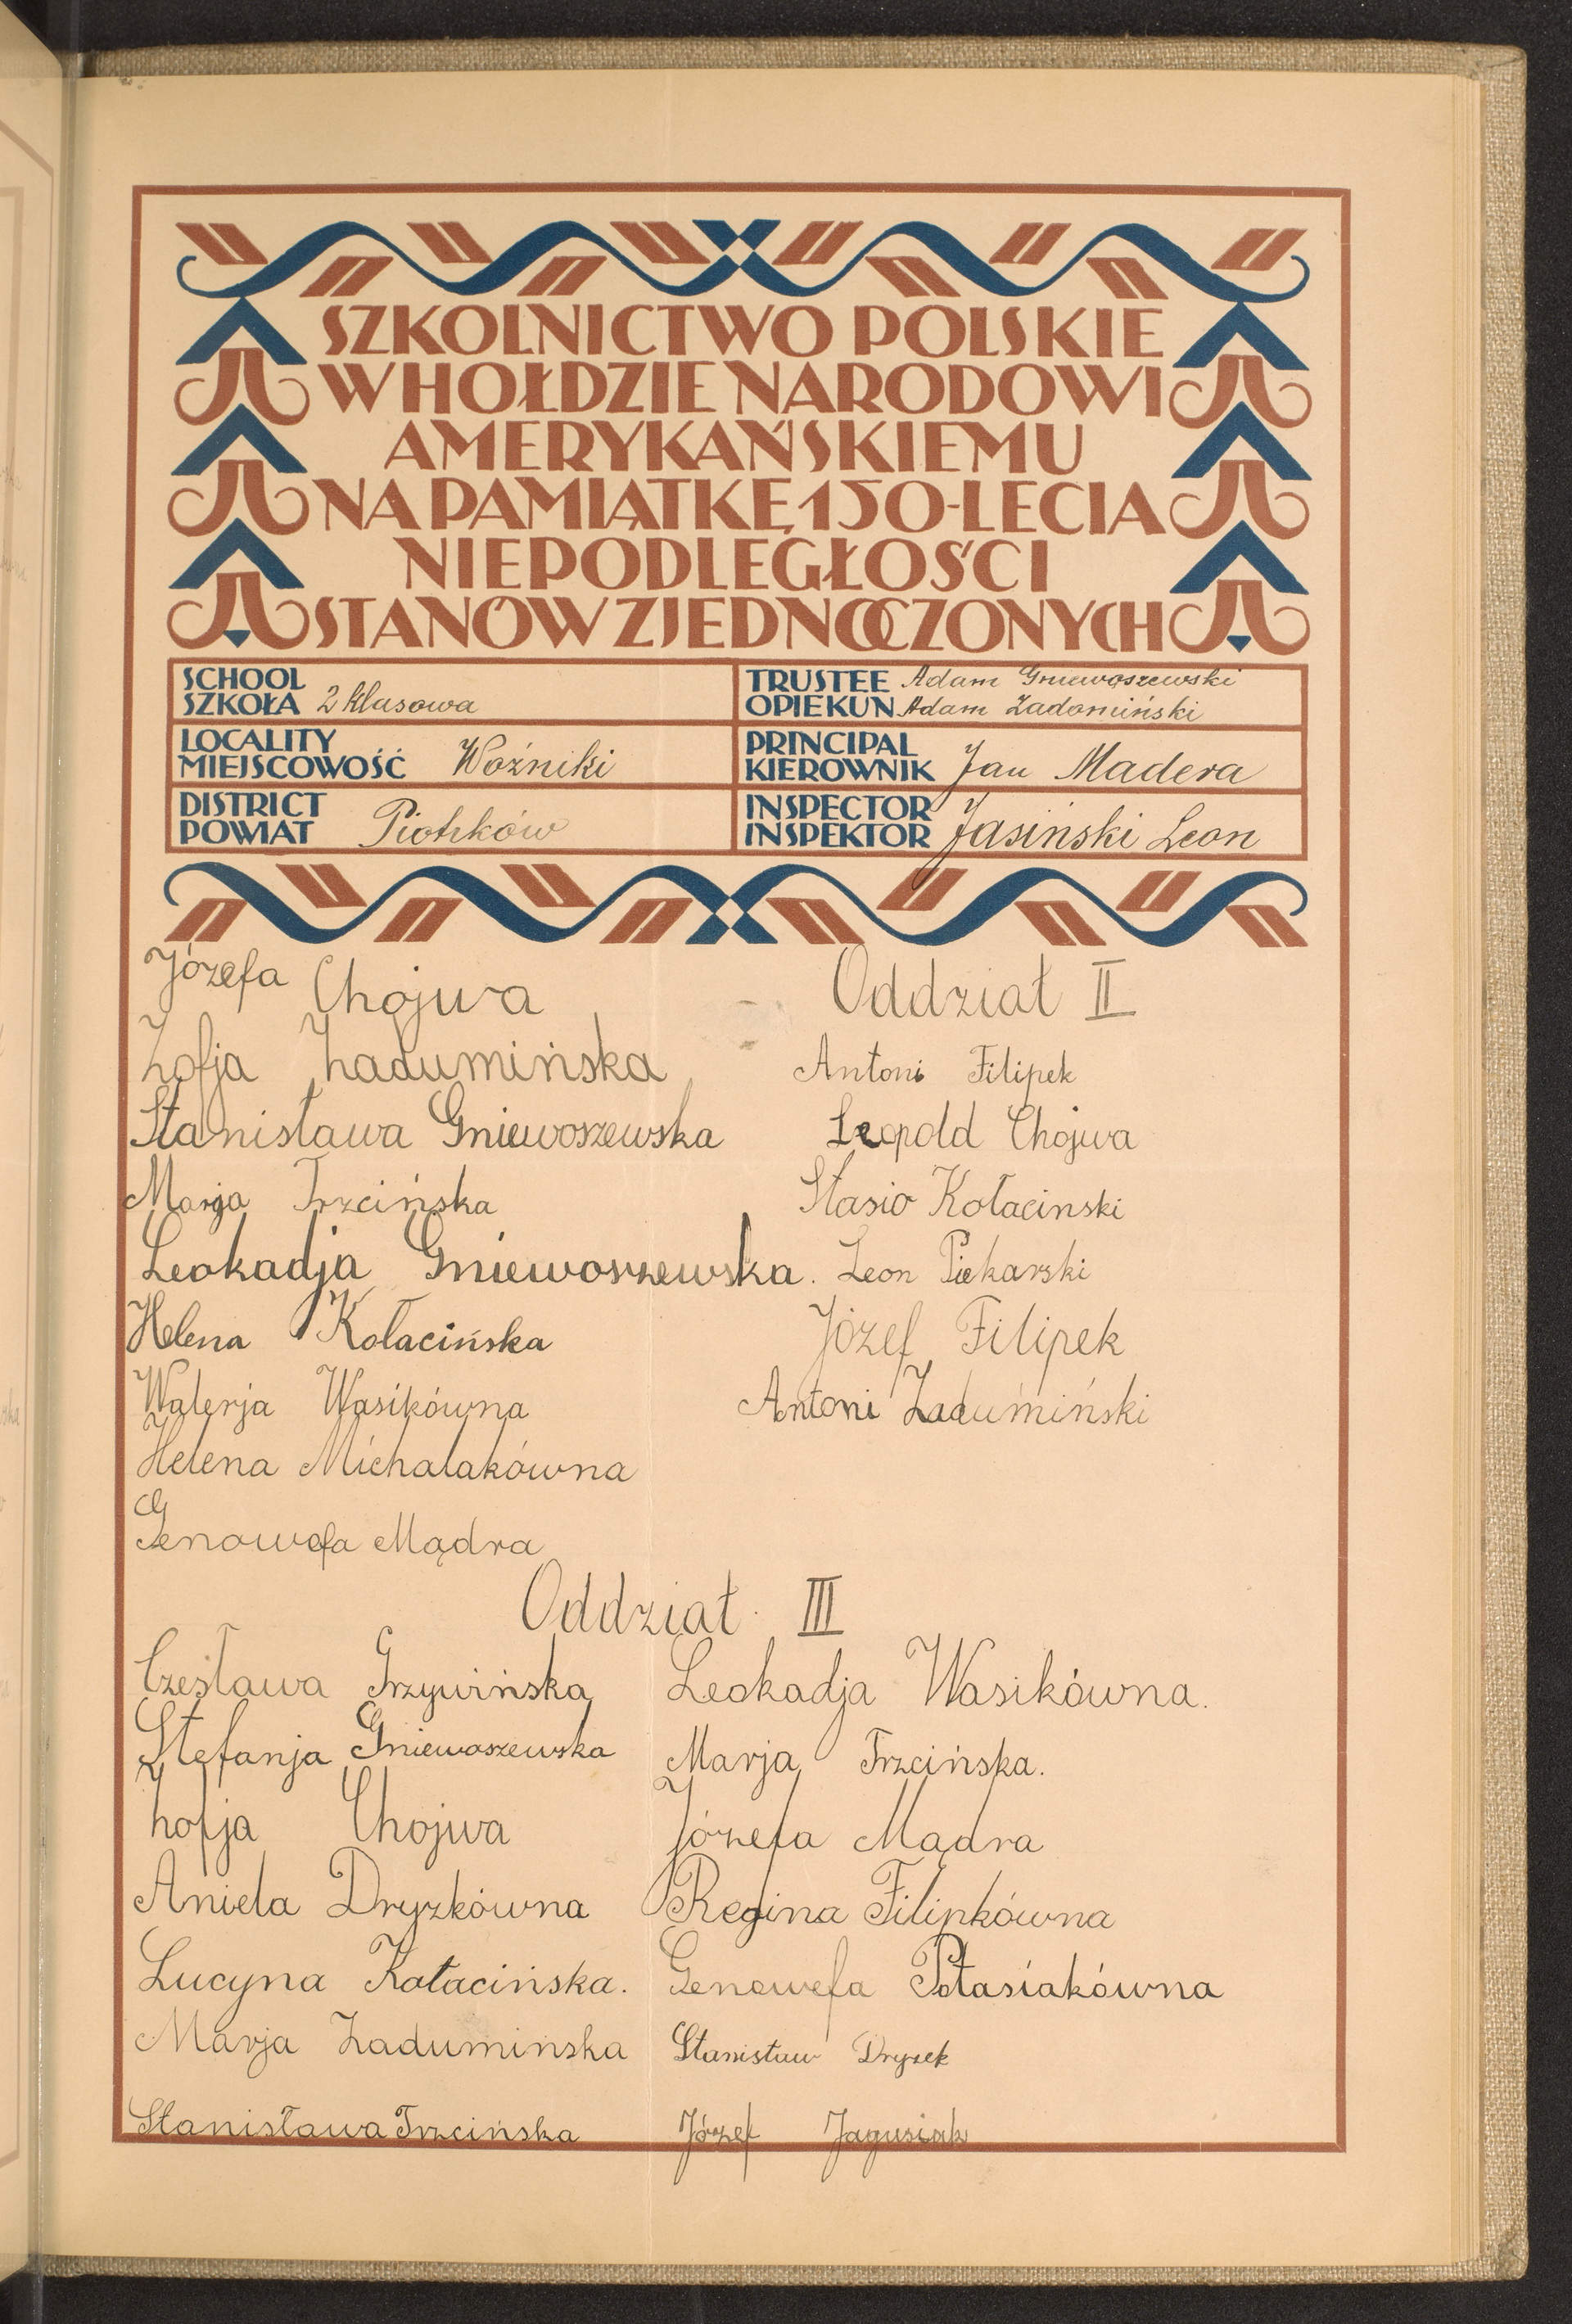 SZKOLNICTWO POLSKIE
W HOŁDZIE NARODOWI
AMERYKAŃSKIEMU
NA PAMIĄTKĘ 150-LECIA
NIEPODLEGŁOŚCI
STANÓW ZJEDNOCZONYCH
SCHOOL
SZKOŁA 2 klasowa
TRUSTEE Adam Gniewoszewski
OPIEKUN Adam Zadomiński
LOCALITY
MIEJSCOWOŚĆ Woźniki
PRINCIPAL
KIEROWNIK Jan Madera
DISTRICT
POWIAT Piotrków
INSPECTOR
INSPEKTOR Jasiński Leon
Józefa Chojwa
Zofja Zadumińska
Stanisława Gniewoszewska
Marja Trzcińska
Leokadja Gniewoszewska.
Helena Kołacińska
Walerja Wasikówna
Helena Michalakówna
Genowefa Mądra
Oddział II
Antoni Filipek
Leopold Chojwa
Stasio Kołacinski
Leon Piekarski
Józef Filipek
Antoni Zadumiński
Oddział III
Czesława Grzywińska
Stefanja Gniewoszewska
Zofja Chojwa
Aniela Dryzkówna
Lucyna Kołacińska.
Marja Zaduminska
Stanisława Trzcińska
Leokadja Wasikówna.
Marja Trzcińska.
Józefa Mądra
Regina Filipkówna
Genowefa Ptasiakówna
Stanisław Dryzek
Józef Jagusiak